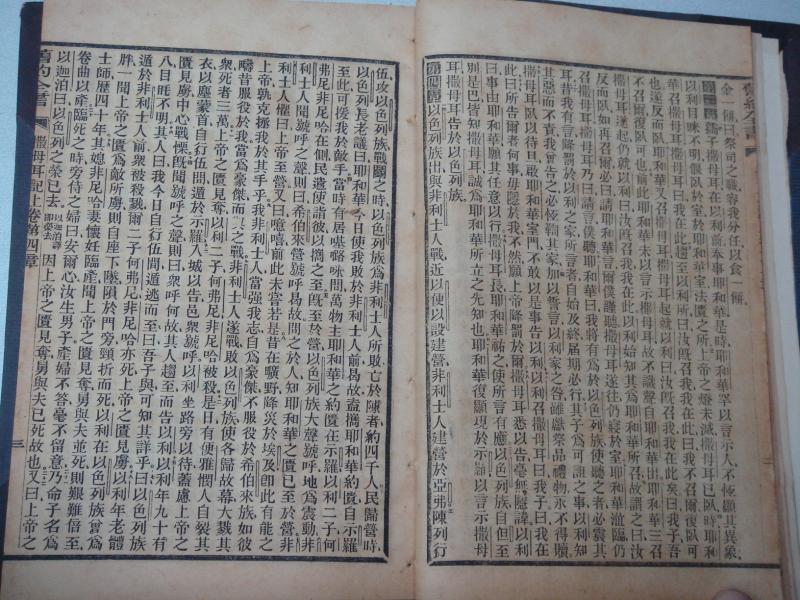 金一餅曰祭司之職容我分任以食一餅
孺子撒母耳在以利前奉事耶和華是時耶和華罕以言示人不恆顯其異象
以利目眯不明偃臥於室於耶和華室法匱之所上帝之燈未滅撒母耳已臥時耶和
華召撒母耳撒母耳曰我在此趨至以利所曰汝旣召我我在此曰我不召爾復臥可
也遂反而臥耶和華又召撒母耳撒母耳起就以利曰汝旣召我我在此矣曰我子吾
不召爾復臥可也前此耶和華未以言示撒母耳故不識聲自耶和華出耶和華三召
撒母耳遂起仍就以利曰汝旣召我我在此以利始知其爲耶和華所召故謂之曰汝
反而臥如再召爾必曰請耶和華言爾僕謹聽撒母耳遂往仍寢於室耶和華涖臨仍
呼撒母耳撒母耳乃曰請言僕聽耶和華曰我將有爲於以色列族使聽之者必震其
耳昔我有言降罰於以利之家所言者自始及終屆期必行其子爲可詛之事以利知
其惡而不責我曾告之必恆鞫其家加以誓言以利家之咎雖獻祭品禮物永不得贖
撒母耳臥以待旦啟耶和華室門不敢以是事告以利以利召撒母耳曰我子曰我在
此曰所告爾者何事毋隱於我不然願上帝降罰於爾撒母耳悉以告毫無隱諱以利
曰事由耶和華願其任意以行撒母耳長耶和華祐之使所言有應以色列族自但至
別是巴皆知撒母耳誠爲耶和華所立之先知也耶和華復顯現於示羅以言示撒母
耳撒母耳告於以色列族
以色列族出與非利士人戰近以便以設建營非利士人建營於亞弗陳列行
伍攻以色列族戰鬬之時以色列族爲非利士人所敗亡於陳者約四千人民歸營時
以色列長老議曰耶和華今日使我敗於非利士人前曷故盍攜耶和華約匱自示羅
至此可援我於敵手當時有居基嚧咻間萬物主耶和華之約匱在示羅以利二子何
弗尼非尼哈在側民遣使詣彼以攜之至旣至於營以色列族大聲號呼地爲震動非
利士人聞號呼之聲則曰希伯來營號呼曷故問之於人知耶和華之匱已至於營非
利士人懼曰上帝至營又曰噫嘻前此未嘗若是昔在曠野降災於埃及卽此有能之
上帝孰克援我於其手乎我非利士人當強我志自爲豪傑不服役於希伯來族如彼
疇昔服役於我當爲豪傑而與之戰非利士人遂戰敗以色列族使各歸故幕大戮其
衆死者三萬上帝之匱見奪以利二子何弗尼非尼哈被殺是日有便雅憫人自裂其
衣以塵蒙首自行伍間遁於示羅入城以告邑衆號呼以利坐路旁以待蓋慮上帝之
匱見虜中心戰慄旣聞號呼之聲則曰衆呼何故其人趨至而告以利以利年九十有
八目眊不明其人曰我今日自行伍間遁逃而至曰吾子與可知其詳乎曰以色列族
遁於非利士人前衆被殺戮爾二子何弗尼非尼哈亦死上帝之匱見虜以利年老體
胖一聞上帝之匱爲敵所虜則自座下墜隕於門旁頸折而死以利在以色列族爲
士師歷四十年其媳非尼哈妻懷妊臨產聞上帝之匱見奪舅與夫並死則艱難倍至
卷曲以產臨死之時旁待之婦曰安爾心汝生男子產婦不答毫不留意乃命子名爲
以迦泊曰以色列之榮已去以迦泊譯卽榮去因上帝之匱見奪舅與夫已死故也又曰上帝之
舊約全書 撒母耳記上卷第四章 三